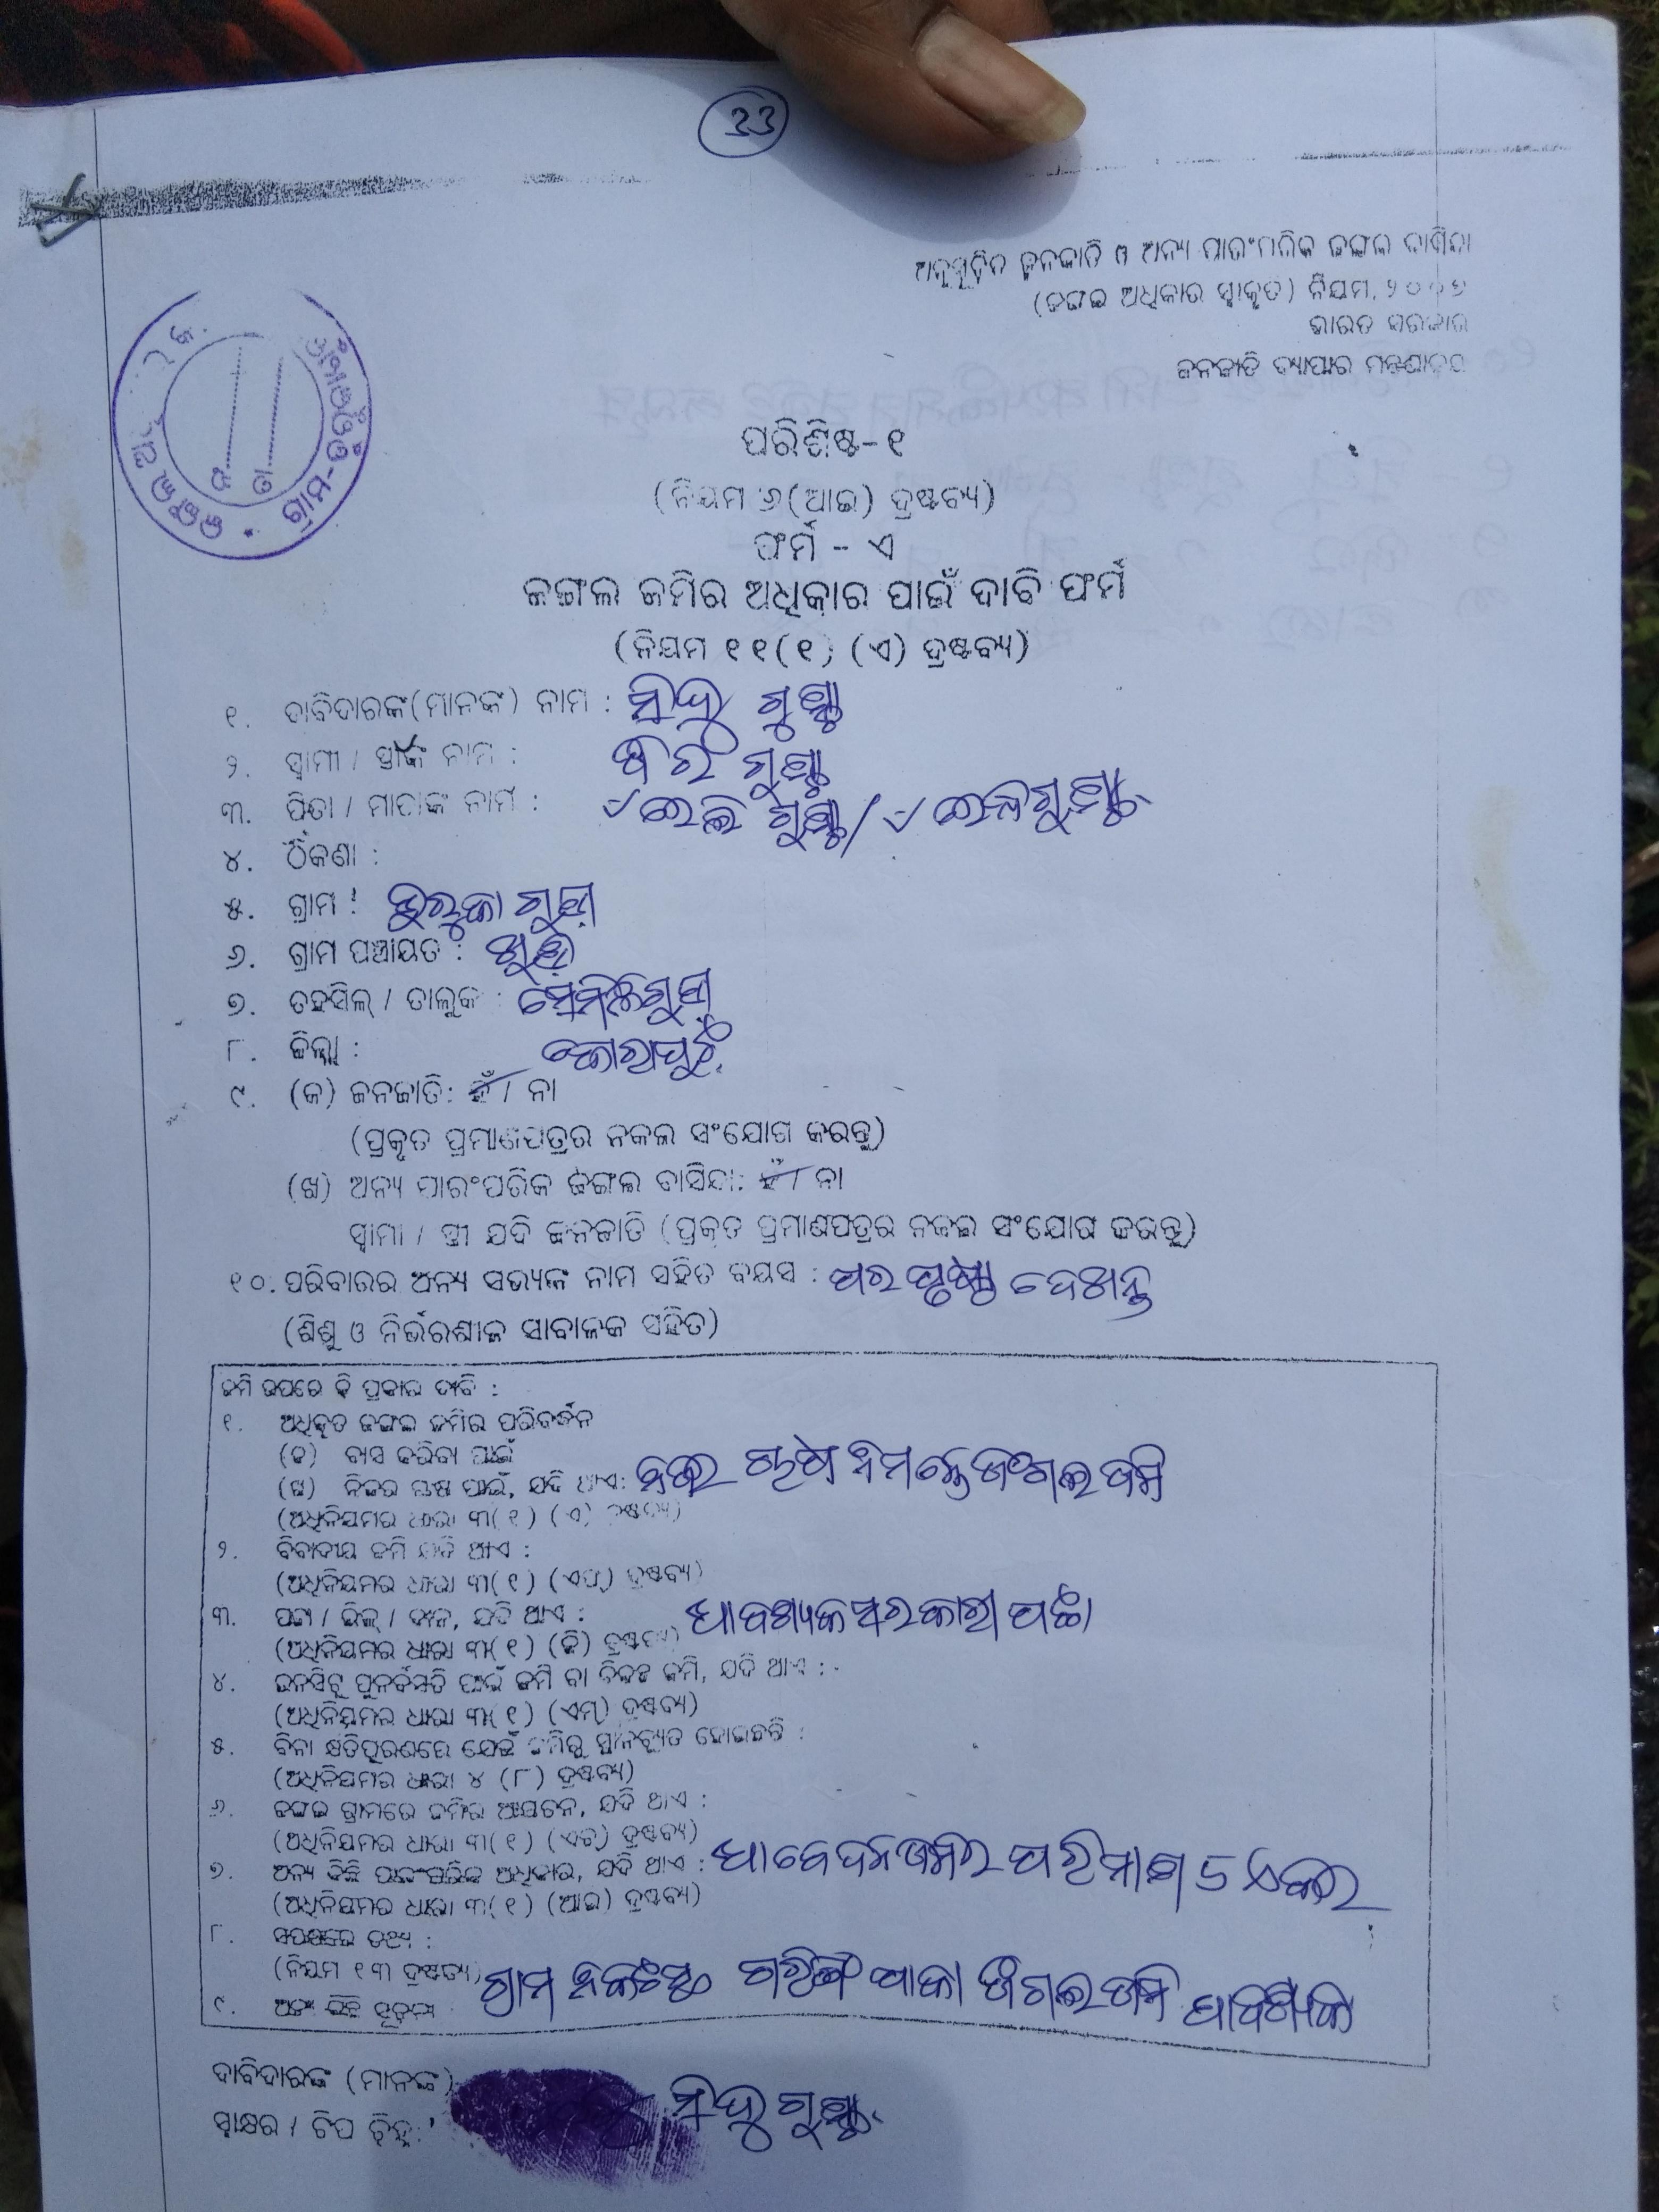 33
ଅନୁସୂଚିତ ଜନଜାତି ଓ ଅନ୍ୟ ପାରଂପରିକ ଜଙ୍ଗଲ ବାସିନ୍ଦା
(ଜଙ୍ଗଲ ଅଧିକାର ସ୍ୱୀକୃତ) ନିୟମ, ୨୦୦୭
ଭାରତ ସରକାର
ଜନଜାତି ବ୍ୟାପାର ମନ୍ତ୍ରଣାଳୟ
ପରିଶିଷ୍ଟ-୧
(ନିୟମ ୬(ଆଇ) ଦ୍ରଷ୍ଟବ୍ୟ)
ଫର୍ମ - ଏ
ଜଙ୍ଗଲ ଜମିର ଅଧିକାର ପାଇଁ ଦାବି ଫର୍ମ
(ନିୟମ ୧୧(୧) (ଏ) ଦ୍ରଷ୍ଟବ୍ୟ)
୧. ଦାବିଦାରଙ୍କ(ମାନଙ୍କ) ନାମ :
୨. ସ୍ୱାମୀ / ସ୍ତ୍ରୀଙ୍କ ନାମ :
୩. ପିତା / ମାତାଙ୍କ ନାମ :
୪. ଠିକଣା :
୫. ଗ୍ରାମ :
୬. ଗ୍ରାମ ପଞ୍ଚାୟତ :
୭. ତହସିଲ୍ / ତାଲୁକ :
୮. ଜିଲ୍ଲା : କୋରାପୁଟ
୯. (କ) ଜନଜାତି: ହଁ / ନା
(ପ୍ରକୃତ ପ୍ରମାଣପତ୍ରର ନକଲ ସଂଯୋଗ କରନ୍ତୁ)
(ଖ) ଅନ୍ୟ ପାରଂପରିକ ଜଙ୍ଗଲ ବାସିନ୍ଦା: ହଁ / ନା
ସ୍ୱାମୀ / ସ୍ତ୍ରୀ ଯଦି ଜନଜାତି (ପ୍ରକୃତ ପ୍ରମାଣପତ୍ରର ନକଲ ସଂଯୋଗ କରନ୍ତୁ)
୧୦. ପରିବାରର ଅନ୍ୟ ସଭ୍ୟଙ୍କ ନାମ ସହିତ ବୟସ : ପର ପୃଷ୍ଠା ଦେଖନ୍ତୁ
(ଶିଶୁ ଓ ନିର୍ଭରଶୀଳ ସାବାଳକ ସହିତ)
ଜମି ଉପରେ କି ପ୍ରକାର ଦାବି :
୧. ଅଧିକୃତ ଜଙ୍ଗଲ ଜମିର ପରିବର୍ତ୍ତନ
(କ) ବାସ କରିବା ପାଇଁ
(ଖ) ନିଜର ଚାଷ ପାଇଁ, ଯଦି ଥାଏ: ଚାଷ ନିମନ୍ତେ ଜଂଗଲ ଜମି
(ଅଧିନିୟମର ଧାରା ୩(୧) (ଏ) ଦ୍ରଷ୍ଟବ୍ୟ)
୨. ବିବାଦୀୟ ଜମି ଯଦି ଥାଏ :
(ଅଧିନିୟମର ଧାରା ୩(୧) (ଏଫ୍) ଦ୍ରଷ୍ଟବ୍ୟ)
୩. ପଟ୍ଟା / ଲିଜ୍ / ଦାନ, ଯଦି ଥାଏ : ଆବଶ୍ୟକ ସରକାରୀ ପଟ୍ଟା
(ଅଧିନିୟମର ଧାରା ୩(୧) (ଜି) ଦ୍ରଷ୍ଟବ୍ୟ)
୪. ଇନସିଟୁ ପୁନର୍ବସତି ପାଇଁ ଜମି ବା ବିକଳ୍ପ ଜମି, ଯଦି ଥାଏ :
(ଅଧିନିୟମର ଧାରା ୩(୧) (ଏମ୍) ଦ୍ରଷ୍ଟବ୍ୟ)
୫. ବିନା କ୍ଷତିପୂରଣରେ ଯେଉଁ ଜମିରୁ ସ୍ଥାନଚ୍ୟୁତ ହୋଇଛନ୍ତି :
(ଅଧିନିୟମର ଧାରା ୪ (୮) ଦ୍ରଷ୍ଟବ୍ୟ)
୬. ଜଙ୍ଗଲ ଗ୍ରାମରେ ଜମିର ଆୟତନ, ଯଦି ଥାଏ :
(ଅଧିନିୟମର ଧାରା ୩(୧) (ଏଚ୍) ଦ୍ରଷ୍ଟବ୍ୟ)
୭. ଅନ୍ୟ କିଛି ପାରଂପରିକ ଅଧିକାର, ଯଦି ଥାଏ : ଆବେଦନ ଜମିର ପରିମାଣ ୫ ଏକର
(ଅଧିନିୟମର ଧାରା ୩(୧) (ଆଇ) ଦ୍ରଷ୍ଟବ୍ୟ)
୮. ସପକ୍ଷରେ ତଥ୍ୟ :
(ନିୟମ ୧୩ ଦ୍ରଷ୍ଟବ୍ୟ) ଗ୍ରାମ ନିକଟସ୍ଥ ଜଂଗଲ ଜମି ଆବଶ୍ୟକ
୯. ଅନ୍ୟ କିଛି ସୂଚନା
ଦାବିଦାରଙ୍କ (ମାନଙ୍କ)
ସ୍ୱାକ୍ଷର / ଟିପ ଚିହ୍ନ: